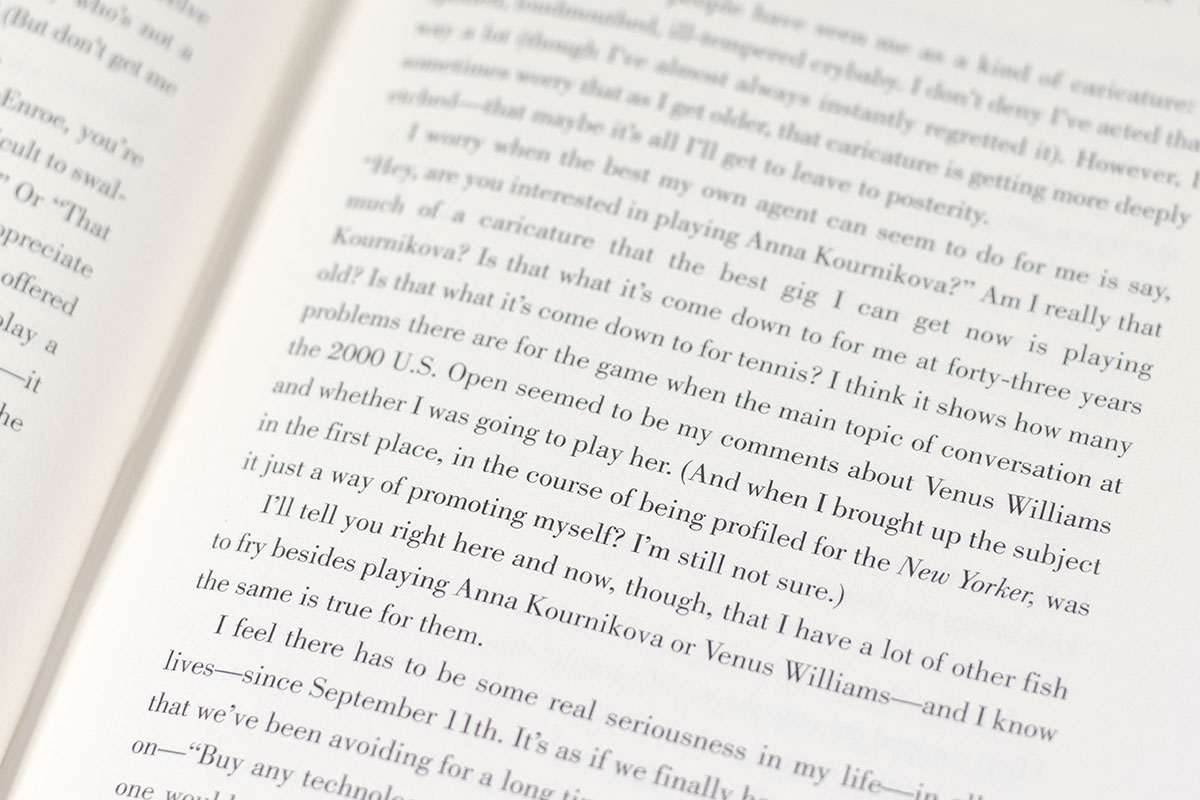 who's not a
(But don't get me
Enroe, you're
cult to swal-
" Or "That
ppreciate
offered
play a
—it
he
people have seen me as a kind of caricature:
loudmouthed, ill-tempered crybaby. I don't deny I've acted tha
way a lot (though I've almost always instantly regretted it). However, I
sometimes worry that as I get older, that caricature is getting more deeply
etched—that maybe it's all I'll get to leave to posterity.
I worry when the best my own agent can seem to do for me is say,
"Hey, are you interested in playing Anna Kournikova?" Am I really that
much of a caricature that the best gig I can get now is playing
Kournikova? Is that what it's come down to for me at forty-three years
old? Is that what it's come down to for tennis? I think it shows how many
problems there are for the game when the main topic of conversation at
the 2000 U.S. Open seemed to be my comments about Venus Williams
and whether I was going to play her. (And when I brought up the subject
in the first place, in the course of being profiled for the New Yorker, was
it just a way of promoting myself? I'm still not sure.)
I'll tell you right here and now, though, that I have a lot of other fish
to fry besides playing Anna Kournikova or Venus Williams—and I know
the same is true for them.
I feel there has to be some real seriousness in my life—in all
lives—since September 11th. It's as if we finally ha
that we've been avoiding for a long tim
on—"Buy any technolo
one woul